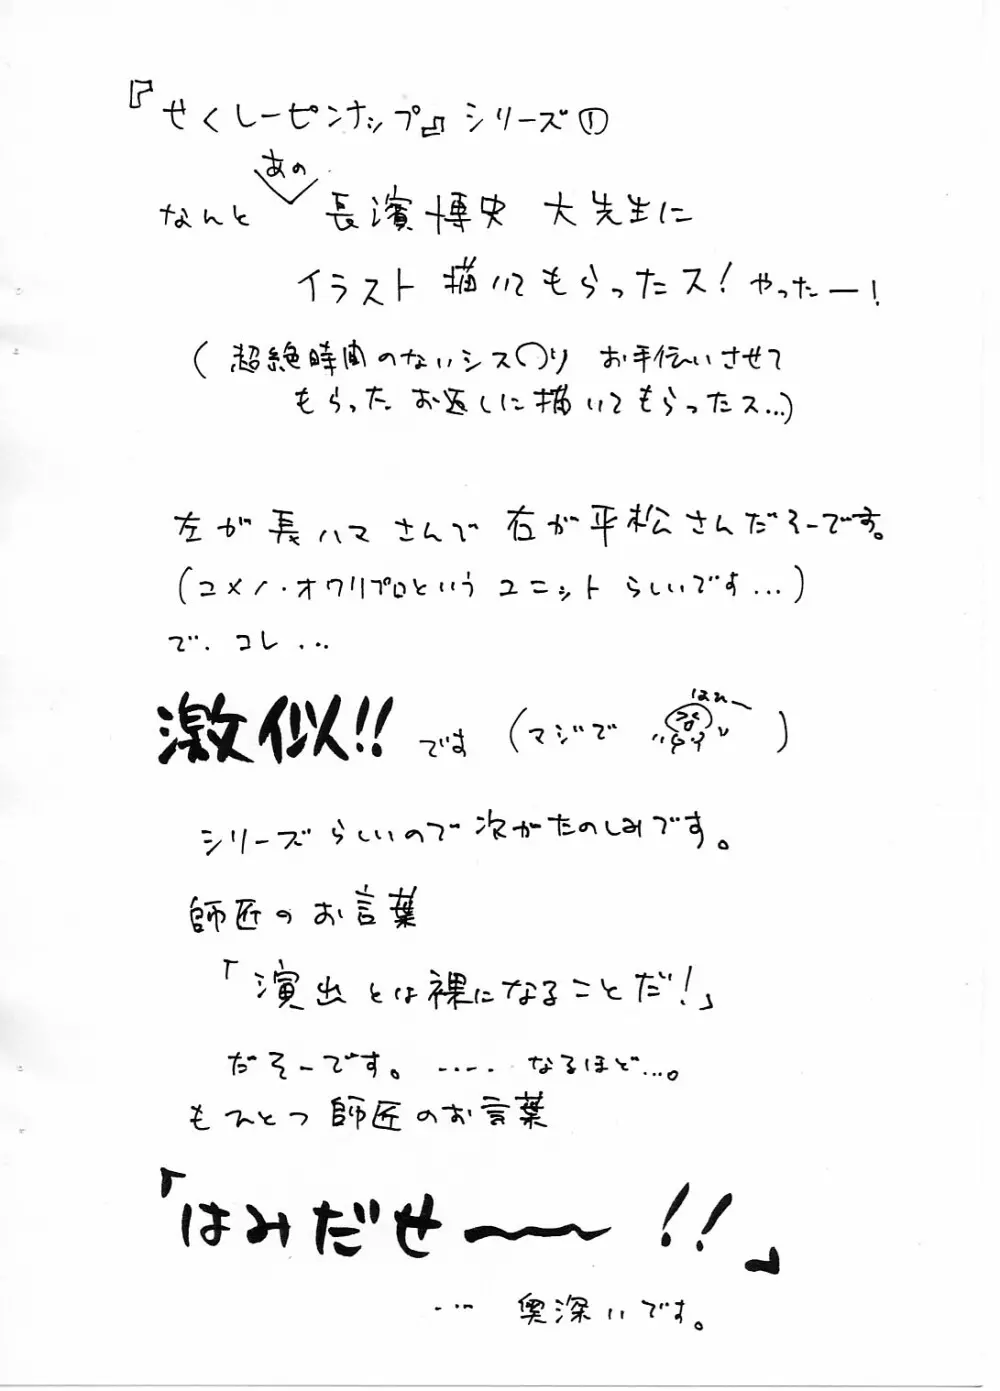 『せくしーピンナップ』シリーズ①
あの
なんと 長濱博史 大先生に
イラスト 描いてもらったス！やったー！
（超絶時間のないシス〇り お手伝いさせて
もらった お返しに描いてもらったス…）
左が長ハマさんで 右が平松さんだそーです。
（ユメノ・オワリプロという ユニットらしいです…）
で、コレ…
激似!! です（マジで はれー ）
シリーズらしいので次がたのしみです。
師匠のお言葉
「演出とは裸になることだ！」
だそーです。…‥なるほど…。
もひとつ師匠のお言葉
「はみだせ〜〜!!」
… 奥深いです。